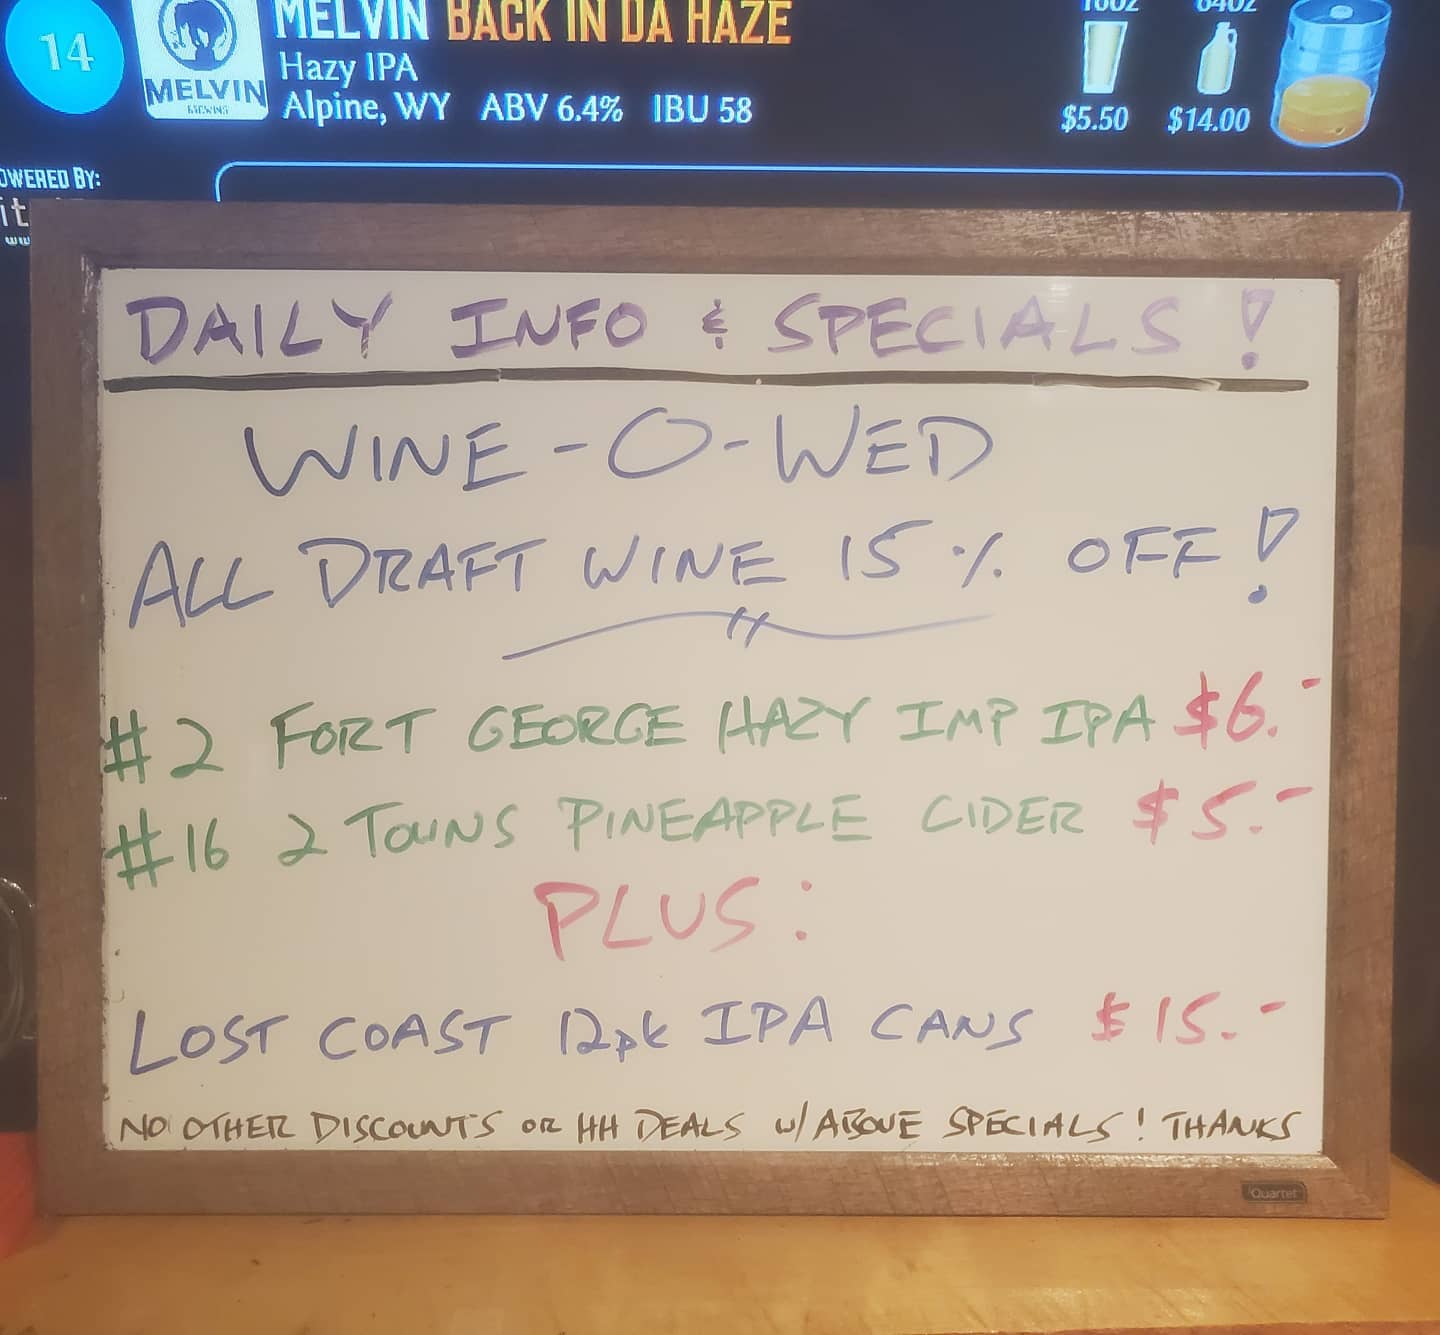 14
MELVIN BACK IN DA HAZE
MELVIN
BREWING
Hazy IPA
Alpine, WY ABV 6.4% IBU 58
16OZ 64OZ
$5.50 $14.00
OWERED BY:
DAILY INFO & SPECIALS!
WINE-O-WED
ALL DRAFT WINE 15% OFF!
#2 FORT GEORGE HAZY IMP IPA $6.-
#16 2 TOWNS PINEAPPLE CIDER $5.-
PLUS:
LOST COAST 12pk IPA CANS $15.-
NO OTHER DISCOUNTS OR HH DEALS W/ABOVE SPECIALS! THANKS
Quartet